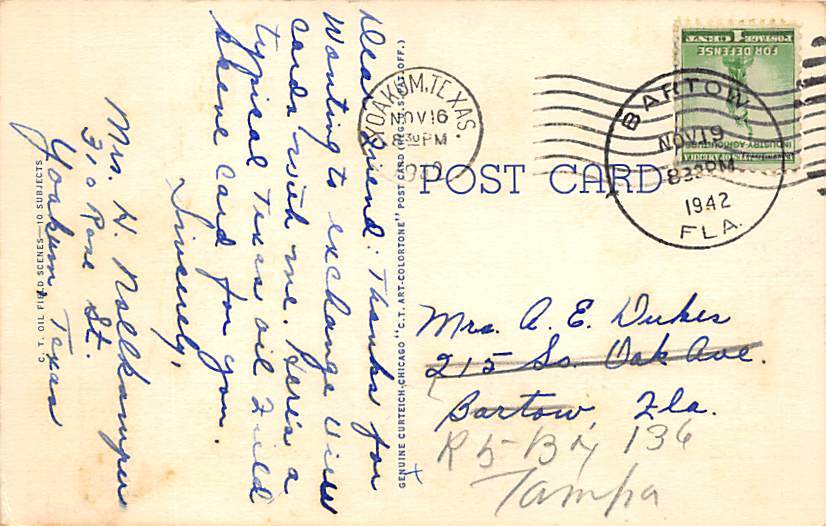 Dear Friend: Thanks for
Wanting to exchange View
cards with me. Here's a
typical Texas oil Field
Scene Card for you.
Sincerely,
Mrs. H. Nollkamper
310 Rose St.
Yoakum Texas
C. T. OIL FIELD SCENES—10 SUBJECTS
GENUINE CURTEICH-CHICAGO "C. T. ART-COLORTONE" POST CARD (REG. U. S. PAT. OFF.)
YOAKUM, TEXAS.
NOV 16
8 30 PM
POST CARD
BARTOW
NOV 19
8 PM
1942
FLA.
POSTAGE 1 CENT
FOR DEFENSE
INDUSTRY AGRICULTURE
UNITED STATES OF AMERICA
Mrs. A. E. Dukes
215 So. Oak Ave.
Bartow, Fla.
R 5 - Bx 136
Tampa